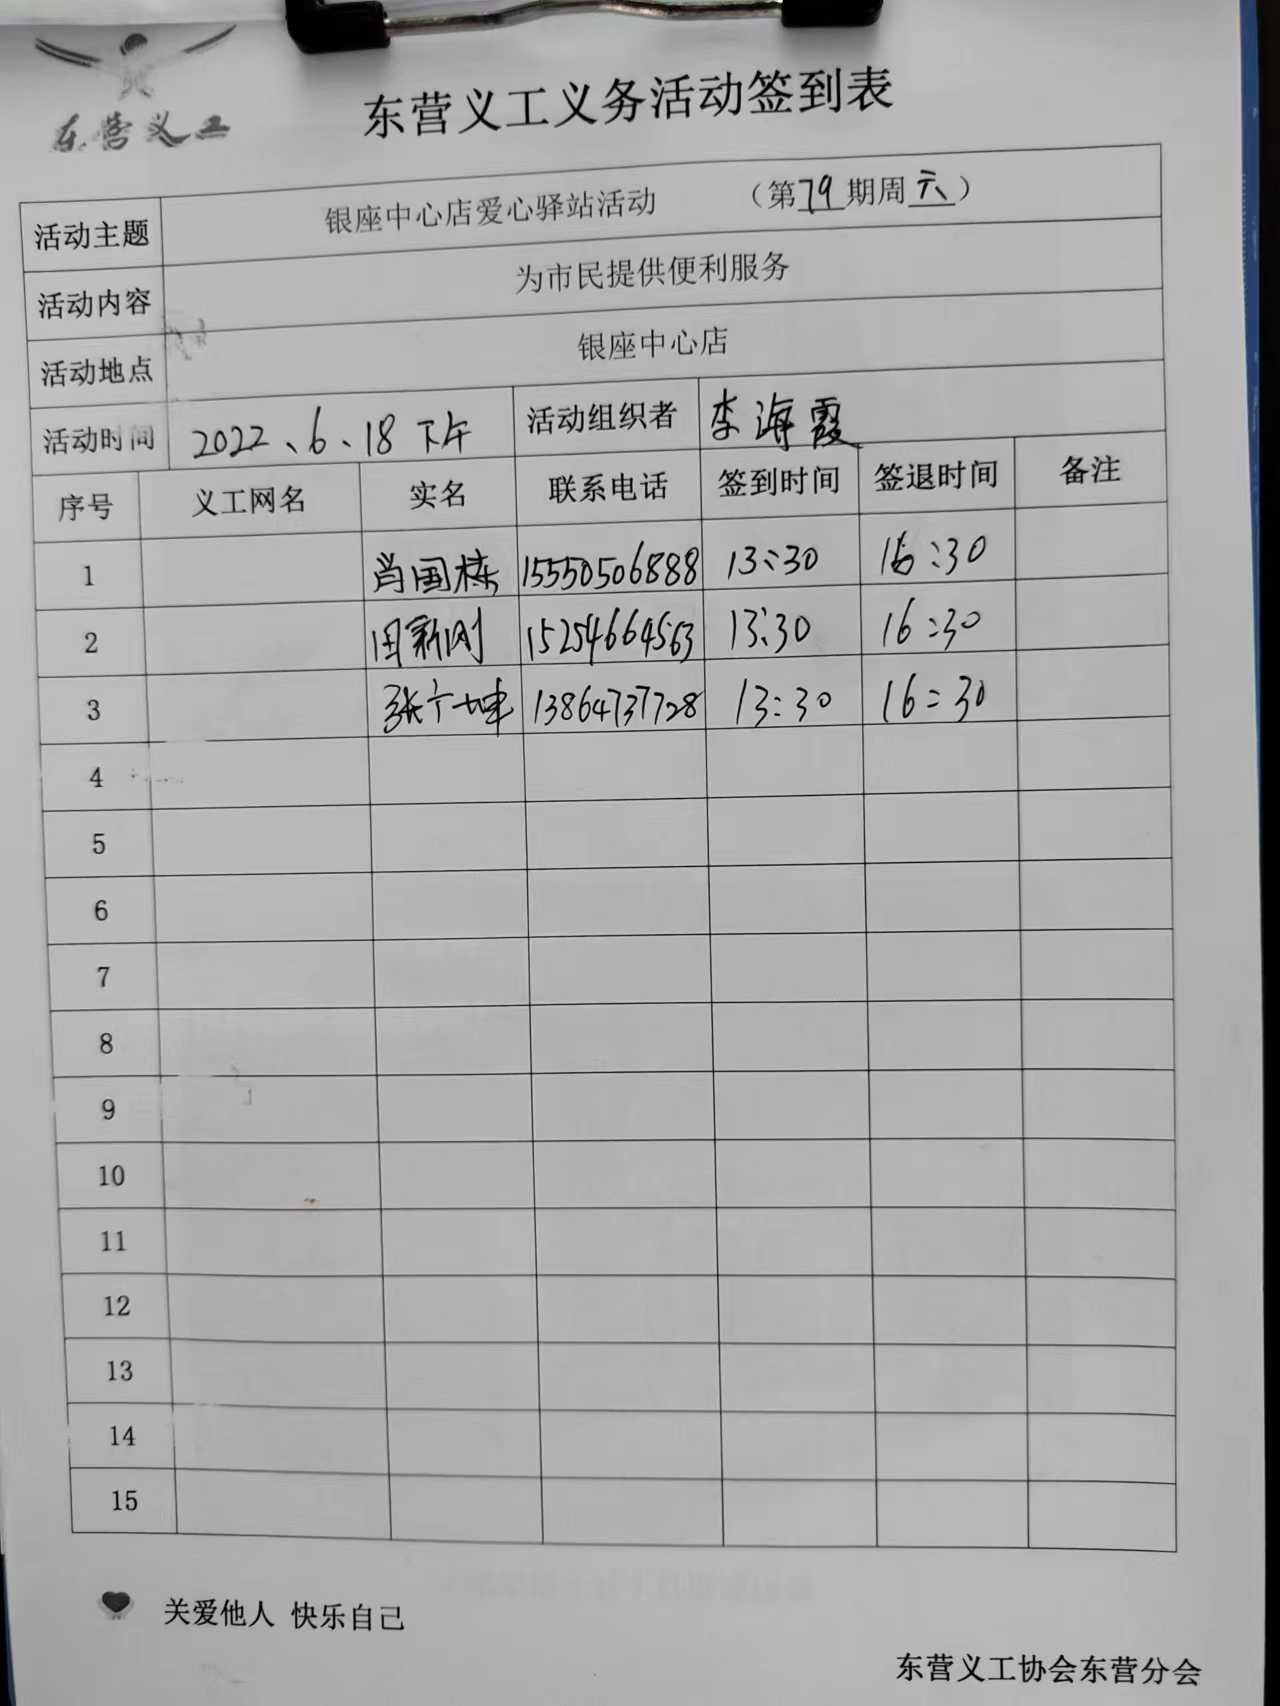 东营义工
东营义工义务活动签到表
活动主题 银座中心店爱心驿站活动 （第79期周六）
活动内容 为市民提供便利服务
活动地点 银座中心店
活动时间 2022、6、18 下午 活动组织者 李海霞
序号 义工网名 实名 联系电话 签到时间 签退时间 备注
1 肖国栋 15550506888 13:30 16:30
2 田新刚 15254664563 13:30 16:30
3 13864737728 13:30 16:30
4
5
6
7
8
9
10
11
12
13
14
15
关爱他人 快乐自己
东营义工协会东营分会